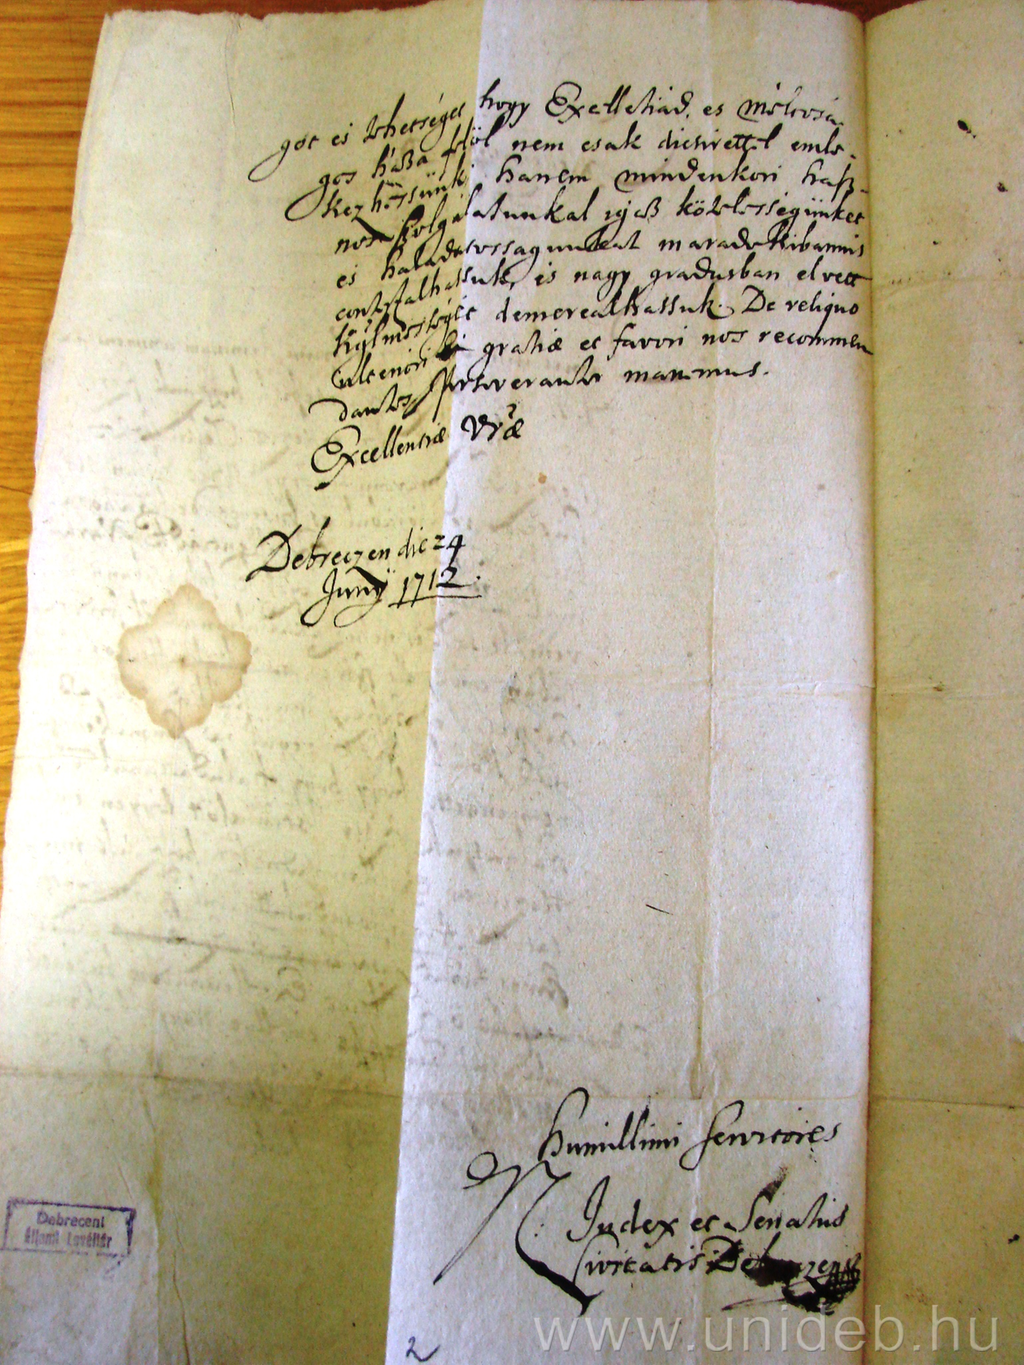 got es tehetséget hogy Excellentiád, es méltosá-
gos háza felöl nem csak dicsirettel emle-
kezhessünk, hanem mindenkori hasz-
nos szolgálatunkal igaz kötelességünket
és háladatosságunkat maradekibannis
contestálhassuk, is nagy gradusban elvett
demerealhassuk. De reliquo
ulteriori gratiæ et favori nos recommen
dantes perseveranter manemus.
Excellentiæ Vræ
Debreczen die 24
Juny 1712.
humillimi servitores
N. Judex et Senatus
Civitatis Debreczen
Debreceni
Állami Levéltár
2
www.unideb.hu